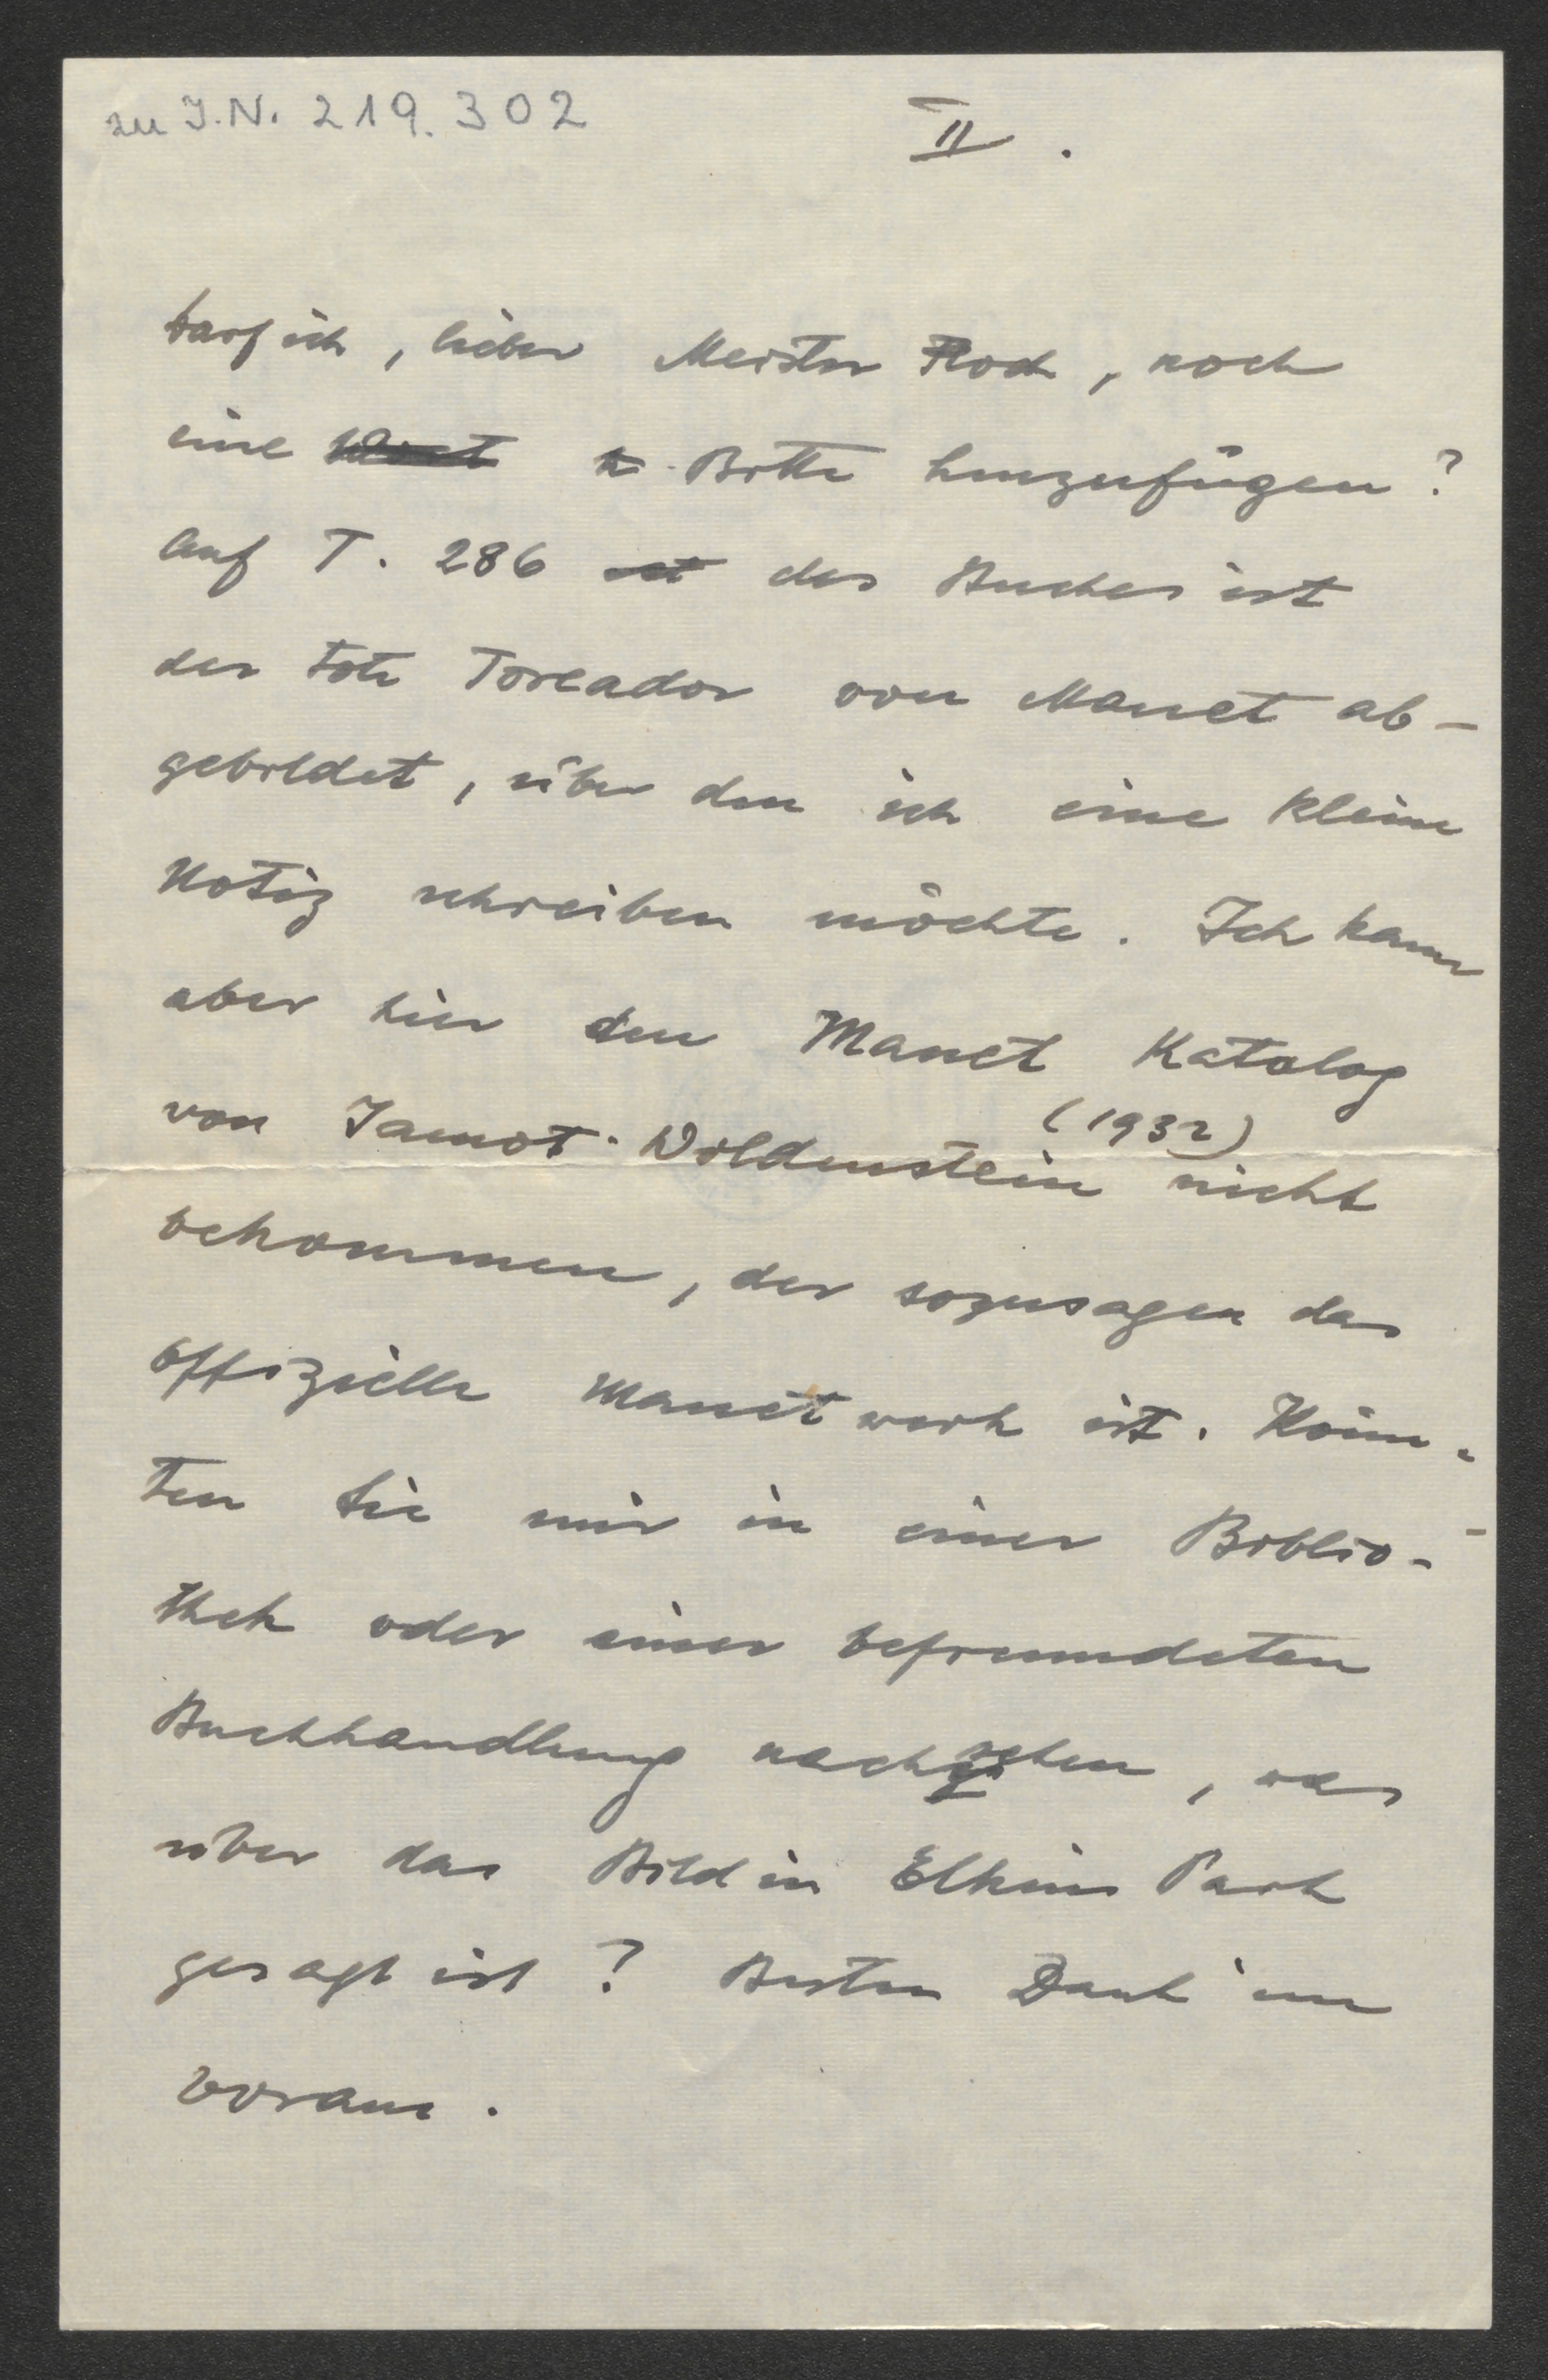 zu I.N. 219.302
II.
darf ich, lieber Meister Roch, noch
eine Bitte hinzufügen?
Auf T. 286 des Buches ist
der tote Toreador von Manet ab-
gebildet, über den ich eine kleine
Notiz schreiben möchte. Ich kann
aber hier den Manet Katalog
(1932)
von Jamot-Wildenstein nicht
bekommen, der sozusagen das
offizielle Manetwerk ist. Könn-
ten Sie mir in einer Biblio-
thek oder einer befreundeten
Buchhandlung nachsehen, was
über das Bild in Elkins Park
gesagt ist? Besten Dank im
voraus.